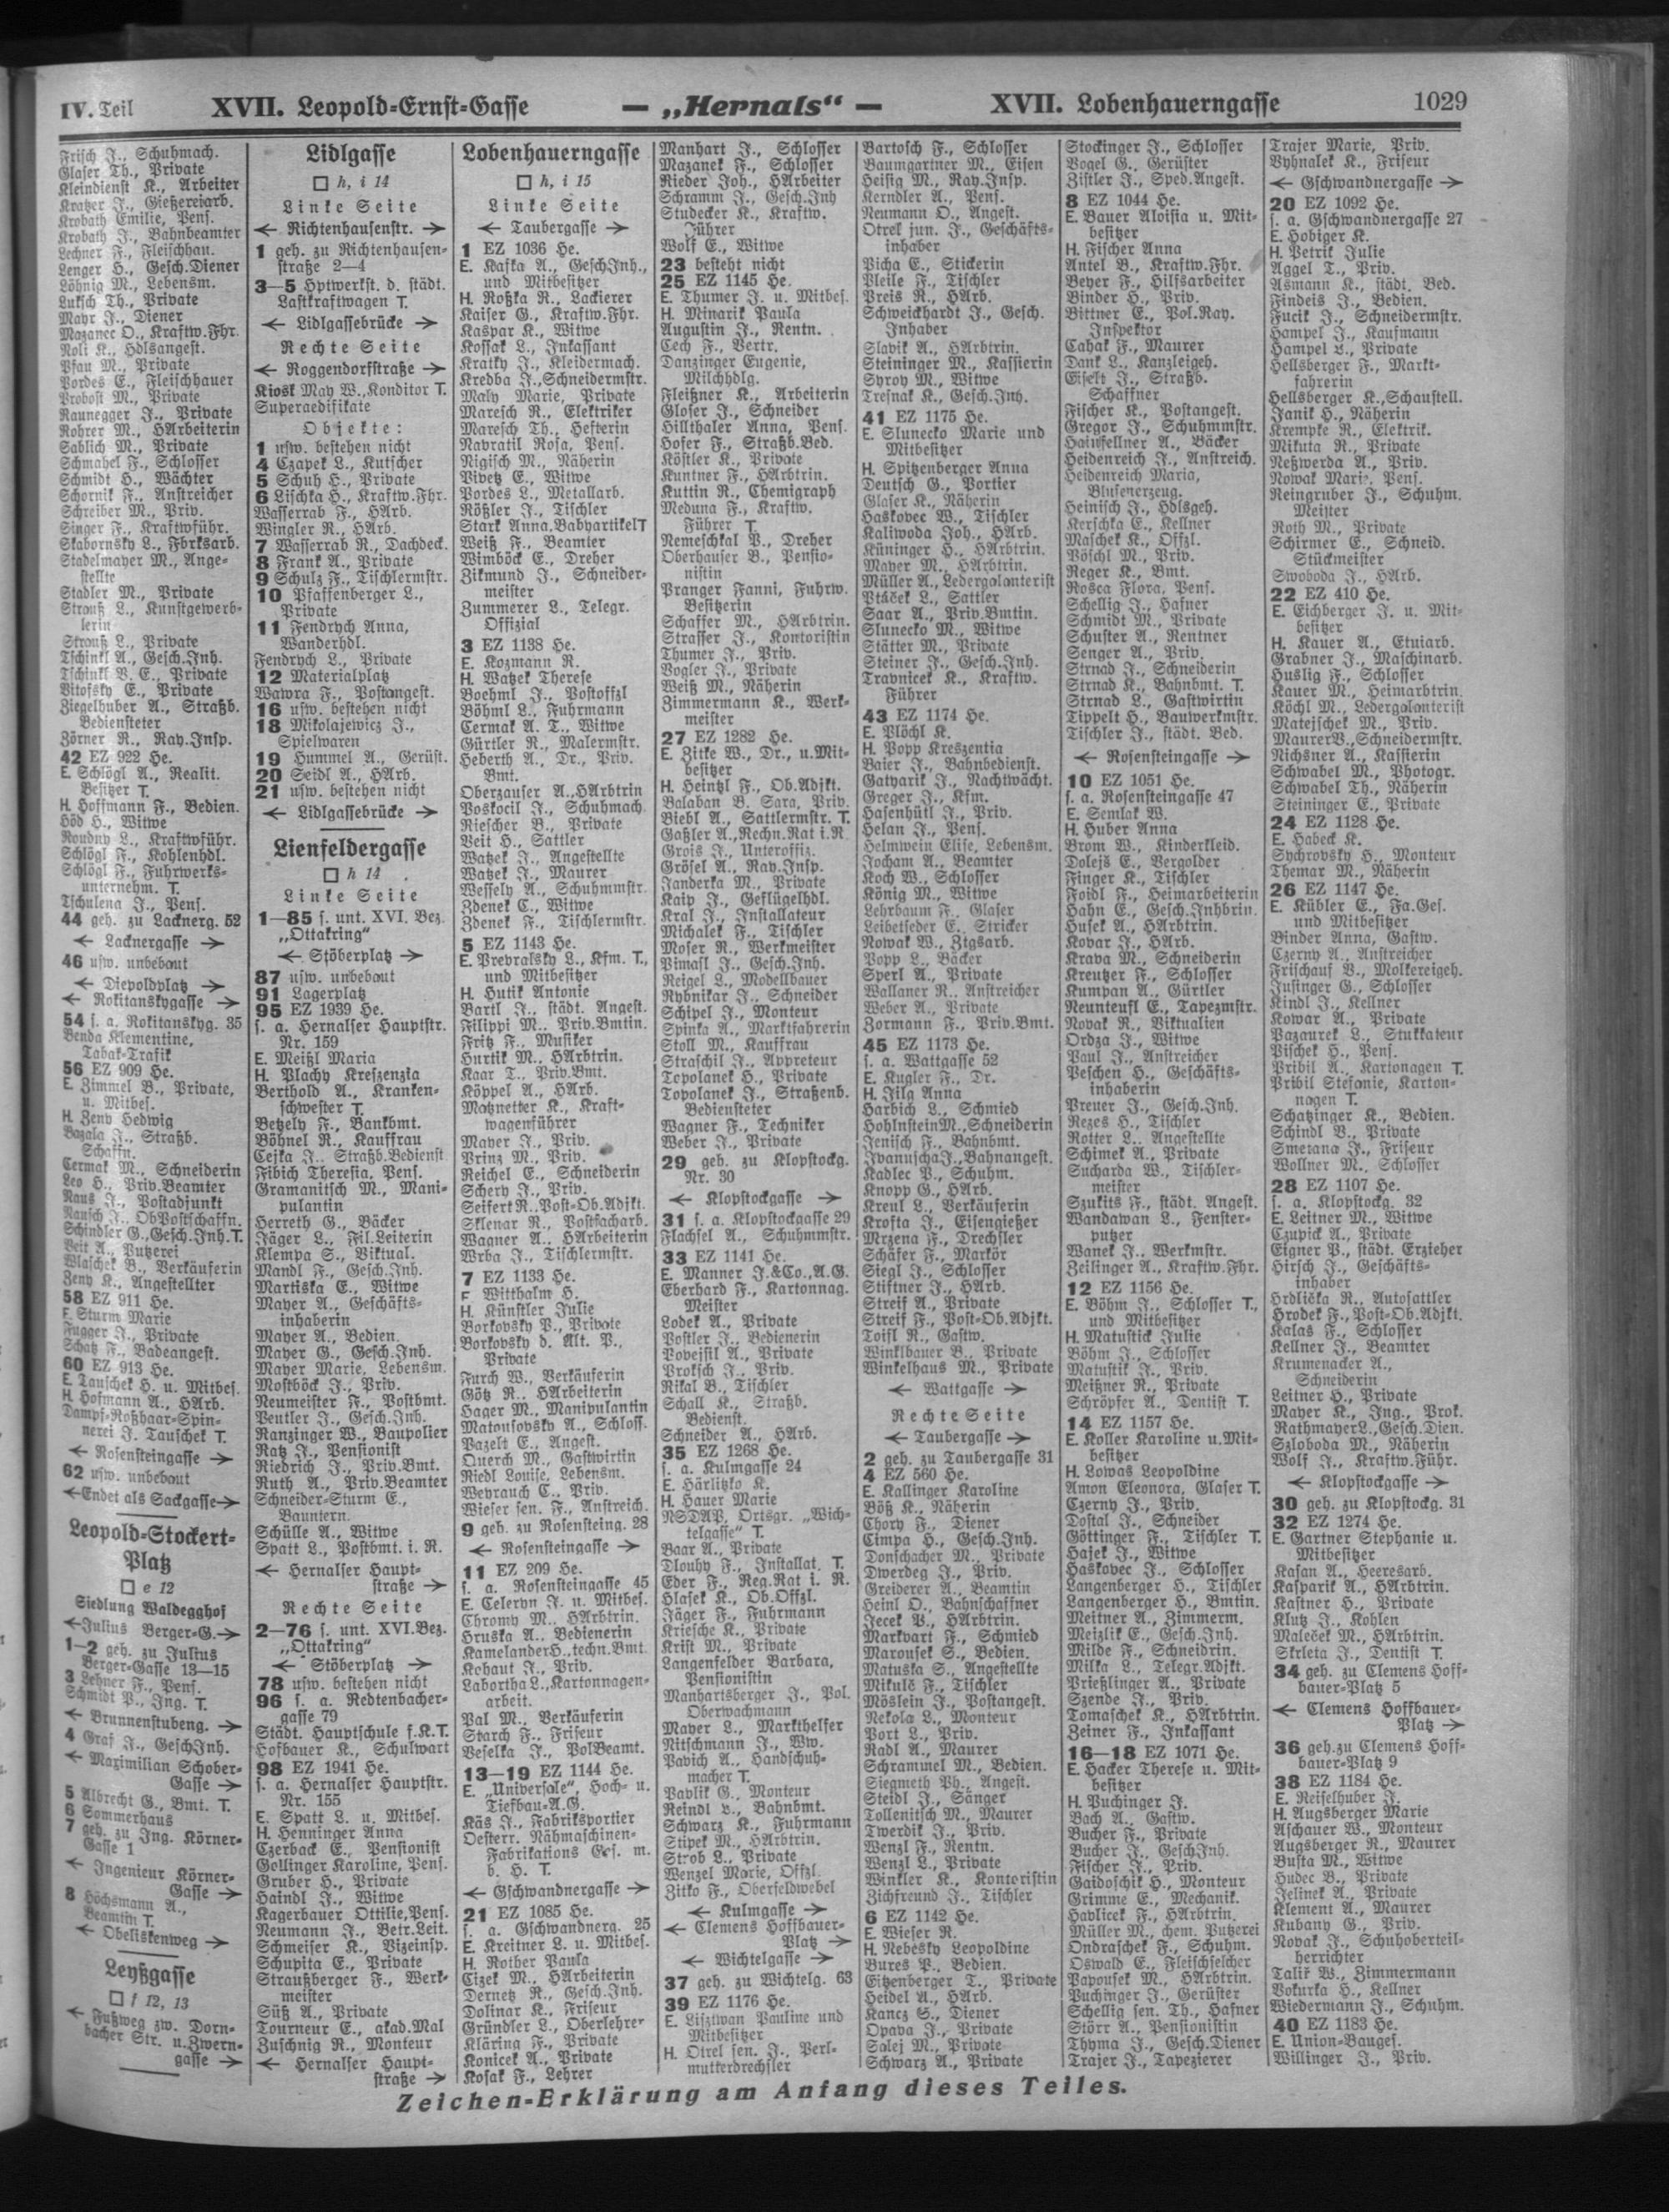 IV. Teil
XVII. Leopold-Ernst-Gasse
— „Hernals“ —
XVII. Lobenhauerngasse
1029
Frisch J., Schuhmach.
Glaser Th., Private
Kleindienst K., Arbeiter
Kratzer J., Gießereiarb.
Krobath Emilie, Pens.
Krobath J., Bahnbeamter
Lechner F., Fleischhau.
Lenger H., Gesch.Diener
Löhnig M., Lebensm.
Luksch Th., Private
Mayr J., Diener
Mazanec O., Kraftw.Fhr.
Noli K., Hdlsangest.
Pfau M., Private
Pordes E., Fleischhauer
Probost M., Private
Raunegger J., Private
Rohrer M., HArbeiterin
Sablich M., Private
Schmahel F., Schlosser
Schmidt H., Wächter
Schornik F., Anstreicher
Schreiber M., Priv.
Singer F., Kraftwführ.
Skabornsky L., Fbrksarb.
Stadelmayer M., Ange-
stellte
Stadler M., Private
Strouß L., Kunstgewerb-
lerin
Strouß L., Private
Tschinkl A., Gesch.Inh.
Tschinkl V. E., Private
Vitofsky E., Private
Ziegelhuber A., Straßb.
Bediensteter
Zörner R., Ray.Insp.
42 EZ 922 He.
E. Schlögl A., Realit.
Besitzer T.
H. Hoffmann F., Bedien.
Höd H., Witwe
Roudny L., Kraftwführ.
Schlögl F., Kohlenhdl.
Schlögl F., Fuhrwerks-
unternehm. T.
Tschulena J., Pens.
44 geh. zu Lacknerg. 52
← Lacknergasse →
46 usw. unbebaut
← Diepoldplatz →
← Rokitanskygasse →
54 s. a. Rokitanskyg. 35
Benda Klementine,
Tabak-Trafik
56 EZ 909 He.
E. Zimmel B., Private,
u. Mitbes.
H. Zeny Hedwig
Bazala J., Straßb.
Schaffn.
Cermak M., Schneiderin
Leo H., Priv.Beamter
Raus J., Postadjunkt
Rausch J., ObPostschaffn.
Schindler G.,Gesch.Inh.T.
Veit A., Putzerei
Wlaschek B., Verkäuferin
Zeny K., Angestellter
58 EZ 911 He.
E. Sturm Marie
Fugger J., Private
Schatz F., Badeangest.
60 EZ 913 He.
E. Tauschek H. u. Mitbes.
H. Hofmann A., HArb.
Dampf-Roßhaar-Spin-
nerei J. Tauschek T.
← Rosensteingasse →
62 usw. unbebaut
←Endet als Sackgasse→
Leopold-Stockert-
Platz
□ e 12
Siedlung Waldegghof
←Julius Berger-G.→
1—2 geh. zu Julius
Berger-Gasse 13—15
3 Lehner F., Pens.
Schmidt P., Ing. T.
← Brunnenstubeng. →
4 Graf J., GeschInh.
← Maximilian Schober-
Gasse →
5 Albrecht G., Bmt. T.
6 Sommerhaus
7 geh. zu Ing. Körner-
Gasse 1
← Ingenieur Körner-
Gasse →
8 Höchsmann A.,
Beamtin T.
← Obeliskenweg →
Leyßgasse
□ f 12, 13
← Fußweg zw. Dorn-
bacher Str. u.Zwern-
gasse →
Lidlgasse
□ h, i 14
Linke Seite
← Richtenhausenstr. →
1 geh. zu Richtenhausen-
straße 2—4
3—5 Hptwerkst. d. städt.
Lastkraftwagen T.
← Lidlgassebrücke →
Rechte Seite
← Roggendorfstraße →
Kiosk May W.,Konditor T.
Superaedifikate
Objekte:
1 usw. bestehen nicht
4 Czapek L., Kutscher
5 Schuh H., Private
6 Lischka H., Kraftw.Fhr.
Wasserrab F., HArb.
Wingler R., HArb.
7 Wasserrab R., Dachdeck.
8 Frank A., Private
9 Schulz F., Tischlermstr.
10 Pfaffenberger L.,
Private
11 Fendrych Anna,
Wanderhdl.
Fendrych L., Private
12 Materialplatz
Wawra F., Postangest.
16 usw. bestehen nicht
18 Mikolajewicz J.,
Spielwaren
19 Hummel A., Gerüst.
20 Seidl A., HArb.
21 usw. bestehen nicht
← Lidlgassebrücke →
Lienfeldergasse
□ h 14
Linke Seite
1—85 s. unt. XVI. Bez.
„Ottakring“
← Stöberplatz →
87 usw. unbebaut
91 Lagerplatz
95 EZ 1939 He.
s. a. Hernalser Hauptstr.
Nr. 159
E. Meißl Maria
H. Plachy Kreszenzia
Berthold A., Kranken-
schwester T.
Betzely F., Bankbmt.
Böhnel R., Kauffrau
Cejka J., Straßb.Bedienst
Fibich Theresia, Pens.
Gramanitsch M., Mani-
pulantin
Herreth G., Bäcker
Jäger L., Fil.Leiterin
Klempa S., Viktual.
Mandl F., Gesch.Inh.
Martiska E., Witwe
Mayer A., Geschäfts-
inhaberin
Mayer A., Bedien.
Mayer G., Gesch.Inh.
Mayer Marie, Lebensm.
Mostböck J., Priv.
Neumeister F., Postbmt.
Pentler J., Gesch.Inh.
Ranzinger W., Baupolier
Ratz J., Pensionist
Riedrich J., Priv.Bmt.
Ruth A., Priv.Beamter
Schneider-Sturm E.,
Bauntern.
Schülle A., Witwe
Spatt L., Postbmt. i. R.
← Hernalser Haupt-
straße →
Rechte Seite
2—76 s. unt. XVI.Bez.
„Ottakring“
← Stöberplatz →
78 usw. bestehen nicht
96 s. a. Redtenbacher-
gasse 79
Städt. Hauptschule f.K.T.
Hofbauer K., Schulwart
98 EZ 1941 He.
s. a. Hernalser Hauptstr.
Nr. 155
E. Spatt L. u. Mitbes.
H. Henninger Anna
Czerback E., Pensionist
Gollinger Karoline, Pens.
Gruber H., Private
Haindl J., Witwe
Kagerbauer Ottilie,Pens.
Neumann J., Betr.Leit.
Schmeiser K., Vizeinsp.
Schupita E., Private
Straußberger F., Werk-
meister
Süß A., Private
Tourneur E., akad.Mal
Zuschnig R., Monteur
← Hernalser Haupt-
straße →
Lobenhauerngasse
□ h, i 15
Linke Seite
← Taubergasse →
1 EZ 1036 He.
E. Kafka A., GeschInh.,
und Mitbesitzer
H. Roßka R., Lackierer
Kaiser G., Kraftw.Fhr.
Kaspar K., Witwe
Kossak L., Inkassant
Kratky J., Kleidermach.
Kredba J.,Schneidermstr.
Maly Marie, Private
Maresch R., Elektriker
Maresch Th., Hefterin
Navratil Rosa, Pens.
Nigisch M., Näherin
Pivetz E., Witwe
Pordes L., Metallarb.
Rößler J., Tischler
Stark Anna,BabyartikelT
Weiß F., Beamter
Wimböck E., Dreher
Zikmund J., Schneider-
meister
Zummerer L., Telegr.
Offizial
3 EZ 1138 He.
E. Kozmann R.
H. Watzek Therese
Boehml J., Postoffzl
Böhml L., Fuhrmann
Cermak A. T., Witwe
Gürtler R., Malermstr.
Heberth A., Dr., Priv.
Bmt.
Oberzauser A.,HArbtrin
Poskocil J., Schuhmach.
Riescher B., Private
Veit H., Sattler
Watzek J., Angestellte
Watzek J., Maurer
Wessely A., Schuhmmstr.
Zdenek C., Witwe
Zdenek F., Tischlermstr.
5 EZ 1143 He.
E. Prevralsky L., Kfm. T.,
und Mitbesitzer
H. Hutik Antonie
Bartl J., städt. Angest.
Filippi M., Priv.Bmtin.
Fritz F., Musiker
Hurtik M., HArbtrin.
Kaar T., Priv.Bmt.
Köppel A., HArb.
Matznetter K., Kraft-
wagenführer
Mayer J., Priv.
Prinz M., Priv.
Reichel E., Schneiderin
Schery J., Priv.
Seifert R.,Post-Ob.Adjkt.
Sklenar R., Postfacharb.
Wagner A., HArbeiterin
Wrba J., Tischlermstr.
7 EZ 1133 He.
E. Witthalm H.
H. Künstler Julie
Borkovsky P., Private
Borkovsky d. Alt. P.,
Private
Furch W., Verkäuferin
Götz R., HArbeiterin
Hager M., Manipulantin
Matousovsky A., Schloss.
Pazelt E., Angest.
Querch M., Gastwirtin
Riedl Louise, Lebensm.
Weyrauch C., Priv.
Wieser sen. F., Anstreich.
9 geh. zu Rosensteing. 28
← Rosensteingasse →
11 EZ 209 He.
s. a. Rosensteingasse 45
E. Celeryn J. u. Mitbes.
Chromy M., HArbtrin.
Hruska A., Bedienerin
KamelanderH.,techn.Bmt.
Kobaut J., Priv.
Labortha L.,Kartonnagen-
arbeit.
Pal M., Verkäuferin
Starch F., Friseur
Veselka J., PolBeamt.
13—19 EZ 1144 He.
E. „Universale“, Hoch- u.
Tiefbau-A.G.
Käs J., Fabriksportier
Oesterr. Nähmaschinen-
Fabrikations Ges. m.
b. H. T.
← Gschwandnergasse →
21 EZ 1085 He.
s. a. Gschwandnerg. 25
E. Kreitner L. u. Mitbes.
H. Rother Paula
Cizek M., HArbeiterin
Dernetz R., Gesch.Inh.
Dolinar K., Friseur
Gründler L., Oberlehrer
Kläring F., Private
Konicek A., Private
Kosak F., Lehrer
Manhart J., Schlosser
Mazanek F., Schlosser
Rieder Joh., HArbeiter
Schramm J., Gesch.Inh
Studecker K., Kraftw.
Führer
Wolf E., Witwe
23 besteht nicht
25 EZ 1145 He.
E. Thumer J. u. Mitbes.
H. Minarik Paula
Augustin J., Rentn.
Cech F., Vertr.
Danzinger Eugenie,
Milchhdlg.
Fleißner K., Arbeiterin
Gloser J., Schneider
Hillthaler Anna, Pens.
Hofer F., Straßb.Bed.
Köstler K., Private
Kuntner F., HArbtrin.
Kuttin R., Chemigraph
Meduna F., Kraftw.
Führer T.
Nemeschkal P., Dreher
Oberhauser B., Pensio-
nistin
Pranger Fanni, Fuhrw.
Besitzerin
Schaffer M., HArbtrin.
Strasser J., Kontoristin
Thumer J., Priv.
Vogler J., Private
Weiß M., Näherin
Zimmermann K., Werk-
meister
27 EZ 1282 He.
E. Zitke W., Dr., u.Mit-
besitzer
H. Heintzl F., Ob.Adjkt.
Balaban B. Sara, Priv.
Biebl A., Sattlermstr. T.
Gaßler A.,Rechn.Rat i.R.
Grois J., Unteroffiz.
Grösel A., Ray.Insp.
Janderka M., Private
Kaip J., Geflügelhdl.
Kral J., Installateur
Michalek F., Tischler
Moser R., Werkmeister
Pimasl J., Gesch.Inh.
Reigel L., Modellbauer
Rybnikar J., Schneider
Schipel J., Monteur
Spinka A., Marktfahrerin
Stoll M., Kauffrau
Straschil J., Appreteur
Topolanek H., Private
Topolanek J., Straßenb.
Bediensteter
Wagner F., Techniker
Weber J., Private
29 geh. zu Klopstockg.
Nr. 30
← Klopstockgasse →
31 s. a. Klopstockgasse 29
Flachsel A., Schuhmmstr.
33 EZ 1141 He.
E. Manner J.&Co.,A.G.
Eberhard F., Kartonnag.
Meister
Lodek A., Private
Postler J., Bedienerin
Povejsil A., Private
Proksch J., Priv.
Rikal B., Tischler
Schall K., Straßb.
Bedienst.
Schneider A., HArb.
35 EZ 1268 He.
s. a. Kulmgasse 24
E. Härlitzko K.
H. Hauer Marie
NSDAP, Ortsgr. „Wich-
telgasse“ T.
Baar A., Private
Dlouhy F., Installat. T.
Eder F., Reg.Rat i. R.
Hlasek K., Ob.Offzl.
Jäger F., Fuhrmann
Kriesche K., Private
Krist M., Private
Langenfelder Barbara,
Pensionistin
Manhartsberger J., Pol.
Oberwachmann
Mayer L., Markthelfer
Nitschmann J., Ww.
Pavich A., Handschuh-
macher T.
Pavlik G., Monteur
Reindl L., Bahnbmt.
Schwarz K., Fuhrmann
Stipek M., HArbtrin.
Strob L., Private
Wenzel Marie, Offzl.
Zitko F., Oberfeldwebel
← Kulmgasse →
← Clemens Hoffbauer-
Platz →
← Wichtelgasse →
37 geh. zu Wichtelg. 63
39 EZ 1176 He.
E. Lisztwan Pauline und
Mitbesitzer
H. Otrel sen. J., Perl-
mutterdrechsler
Bartosch F., Schlosser
Baumgartner M., Eisen
Heisig M., Ray.Insp.
Kerndler A., Pens.
Neumann O., Angest.
Otrek jun. J., Geschäfts-
inhaber
Picha E., Stickerin
Pleile F., Tischler
Preis R., HArb.
Schweickhardt J., Gesch.
Inhaber
Slavik A., HArbtrin.
Steininger M., Kassierin
Syroy M., Witwe
Tresnak K., Gesch.Inh.
41 EZ 1175 He.
E. Slunecko Marie und
Mitbesitzer
H. Spitzenberger Anna
Deutsch G., Portier
Glaser K., Näherin
Haskovec W., Tischler
Kaliwoda Joh., HArb.
Küninger H., HArbtrin.
Mayer M., HArbtrin.
Müller A.,Ledergalanterist
Ptáček L., Sattler
Saar A., Priv.Bmtin.
Slunecko M., Witwe
Stätter M., Private
Steiner J., Gesch.Inh.
Travnicek K., Kraftw.
Führer
43 EZ 1174 He.
E. Plöchl K.
H. Popp Kreszentia
Baier J., Bahnbedienst.
Gatyarik J., Nachtwächt.
Greger J., Kfm.
Hasenhütl J., Priv.
Helan J., Pens.
Helmwein Elise, Lebensm.
Jocham A., Beamter
Koch W., Schlosser
König M., Witwe
Lehrbaum F., Glaser
Leibetseder E., Stricker
Nowak W., Ztgsarb.
Popp L., Bäcker
Sperl A., Private
Wallaner R., Anstreicher
Weber A., Private
Zormann F., Priv.Bmt.
45 EZ 1173 He.
s. a. Wattgasse 52
E. Kugler F., Dr.
H. Jilg Anna
Harbich L., Schmied
HohlnsteinM.,Schneiderin
Jenisch F., Bahnbmt.
IvanuschaJ.,Bahnangest.
Kadlec P., Schuhm.
Knopp G., HArb.
Kreul L., Verkäuferin
Krofta J., Eisengießer
Mrzena F., Drechsler
Schäfer F., Markör
Siegl J., Schlosser
Stiftner J., HArb.
Streif A., Private
Streif F., Post-Ob.Adjkt.
Toifl R., Gastw.
Winklbauer B., Private
Winkelhaus M., Private
← Wattgasse →
Rechte Seite
← Taubergasse →
2 geh. zu Taubergasse 31
4 EZ 560 He.
E. Kallinger Karoline
Böß K., Näherin
Chory F., Diener
Cimpa H., Gesch.Inh.
Donschacher M., Private
Dwerdeg J., Priv.
Greiderer A., Beamtin
Heinl O., Bahnschaffner
Jecek P., HArbtrin.
Markvart F., Schmied
Marousek S., Bedien.
Matuska S., Angestellte
Mikulč F., Tischler
Möslein J., Postangest.
Nekola L., Monteur
Port L., Priv.
Radl A., Maurer
Schrammel M., Bedien.
Siegmeth Ph., Angest.
Steidl J., Sänger
Tollenitsch M., Maurer
Twerdik J., Priv.
Wenzl F., Rentn.
Wenzl L., Private
Winkler K., Kontoristin
Zichfreund J., Tischler
6 EZ 1142 He.
E. Wieser R.
H. Nebesky Leopoldine
Bures P., Bedien.
Eitzenberger T., Private
Heidel A., HArb.
Kancz S., Diener
Opava J., Private
Salej M., Private
Schwarz A., Private
Stockinger J., Schlosser
Vogel G., Gerüster
Zistler J., Sped.Angest.
8 EZ 1044 He.
E. Bauer Aloisia u. Mit-
besitzer
H. Fischer Anna
Antel B., Kraftw.Fhr.
Beyer F., Hilfsarbeiter
Binder H., Priv.
Bittner E., Pol.Ray.
Inspektor
Cahak F., Maurer
Dank L., Kanzleigeh.
Eiselt J., Straßb.
Schaffner
Fischer K., Postangest.
Gregor J., Schuhmmstr.
Hainfellner A., Bäcker
Heidenreich J., Anstreich.
Heidenreich Maria,
Blusenerzeug.
Heinisch J., Hdlsgeh.
Kerschka E., Kellner
Maschek K., Offzl.
Pöschl M., Priv.
Reger K., Bmt.
Rosca Flora, Pens.
Schellig J., Hafner
Schmidt M., Private
Schuster A., Rentner
Senger A., Priv.
Strnad J., Schneiderin
Strnad K., Bahnbmt. T.
Strnad L., Gastwirtin
Tippelt H., Bauwerkmstr.
Tischler J., städt. Bed.
← Rosensteingasse →
10 EZ 1051 He.
s. a. Rosensteingasse 47
E. Semlak W.
H. Huber Anna
Brom W., Kinderkleid.
Dolejs E., Vergolder
Finger K., Tischler
Foidl F., Heimarbeiterin
Hahn E., Gesch.Inhbrin.
Husek A., HArbtrin.
Kovar J., HArb.
Krava M., Schneiderin
Kreutzer F., Schlosser
Kumpan A., Gürtler
Neunteufl E., Tapezmstr.
Novak R., Viktualien
Ordza J., Witwe
Paul J., Anstreicher
Peschen H., Geschäfts-
inhaberin
Preuer J., Gesch.Inh.
Rezes H., Tischler
Rotter L., Angestellte
Schimek A., Private
Sucharda W., Tischler-
meister
Szukits F., städt. Angest.
Wandawan L., Fenster-
putzer
Wanek J., Werkmstr.
Zeilinger A., Kraftw.Fhr.
12 EZ 1156 He.
E. Böhm J., Schlosser T.,
und Mitbesitzer
H. Matustick Julie
Böhm J., Schlosser
Matustik J., Priv.
Meißner R., Private
Schröpfer A., Dentist T.
14 EZ 1157 He.
E. Koller Karoline u.Mit-
besitzer
H. Lowas Leopoldine
Amon Eleonora, Glaser T.
Czerny J., Priv.
Dostal J., Schneider
Göttinger F., Tischler T.
Hajek J., Witwe
Haskovec J., Schlosser
Langenberger H., Tischler
Langenberger H., Bmtin.
Meitner A., Zimmerm.
Meizlik E., Gesch.Inh.
Milde F., Schneidrin.
Milka L., Telegr.Adjkt.
Prießlinger A., Private
Szende J., Priv.
Tomaschek K., HArbtrin.
Zeiner F., Inkassant
16—18 EZ 1071 He.
E. Hacker Therese u. Mit-
besitzer
H. Puchinger J.
Bach A., Gastw.
Bucher F., Private
Bucher J., GeschInh.
Fischer J., Priv.
Gaidoschik H., Monteur
Grimme E., Mechanik.
Havlicek F., HArbtrin.
Müller M., chem. Putzerei
Ondraschek F., Schuhm.
Oswald E., Fleischselcher
Papousek M., HArbtrin.
Puchinger J., Gerüster
Schellig sen. Th., Hafner
Störr A., Pensionistin
Thyma J., Gesch.Diener
Trajer J., Tapezierer
Trajer Marie, Priv.
Vyhnalek K., Friseur
← Gschwandnergasse →
20 EZ 1092 He.
s. a. Gschwandnergasse 27
E. Hobiger K.
H. Petrik Julie
Aggel T., Priv.
Asmann K., städt. Bed.
Findeis J., Bedien.
Fucik J., Schneidermstr.
Hampel J., Kaufmann
Hampel L., Private
Hellsberger F., Markt-
fahrerin
Hellsberger K.,Schaustell.
Janik H., Näherin
Krempke R., Elektrik.
Mikuta R., Private
Neßwerda A., Priv.
Nowak Marie, Pens.
Reingruber J., Schuhm.
Meister
Roth M., Private
Schirmer E., Schneid.
Stückmeister
Swoboda J., HArb.
22 EZ 410 He.
E. Eichberger J. u. Mit-
besitzer
H. Kauer A., Etuiarb.
Grabner J., Maschinarb.
Huslig F., Schlosser
Kauer M., Heimarbtrin.
Köchl M., Ledergalanterist
Matejschek M., Priv.
MaurerV.,Schneidermstr.
Nichsner A., Kassierin
Schwabel M., Photogr.
Schwabel Th., Näherin
Steininger E., Private
24 EZ 1128 He.
E. Habeck K.
Sychrovsky H., Monteur
Themar M., Näherin
26 EZ 1147 He.
E. Kübler E., Fa.Ges.
und Mitbesitzer
Binder Anna, Gastw.
Czerny A., Anstreicher
Frischauf B., Molkereigeh.
Jusinger G., Schlosser
Kindl J., Kellner
Kowar A., Private
Pazaurek L., Stukkateur
Pischek H., Pens.
Pribil A., Kartonagen T.
Pribil Stefanie, Karton-
nagen T.
Schatzinger K., Bedien.
Schindl B., Private
Smetana J., Friseur
Wollner M., Schlosser
28 EZ 1107 He.
s. a. Klopstockg. 32
E. Leitner M., Witwe
Czupick A., Private
Eigner P., städt. Erzieher
Hirsch J., Geschäfts-
inhaber
Hrdlička R., Autosattler
Hrodek F.,Post-Ob.Adjkt.
Kalas F., Schlosser
Kellner J., Beamter
Krumenacker A.,
Schneiderin
Leitner H., Private
Mayer K., Ing., Prok.
RathmayerL.,Gesch.Dien.
Szloboda M., Näherin
Wolf J., Kraftw.Führ.
← Klopstockgasse →
30 geh. zu Klopstockg. 31
32 EZ 1274 He.
E. Gartner Stephanie u.
Mitbesitzer
Kasan A., Heeresarb.
Kasparik A., HArbtrin.
Kastner H., Private
Klutz J., Kohlen
Maleček M., HArbtrin.
Skrleta J., Dentist T.
34 geh. zu Clemens Hoff-
bauer-Platz 5
← Clemens Hoffbauer-
Platz →
36 geh.zu Clemens Hoff-
bauer-Platz 9
38 EZ 1184 He.
E. Reiselhuber J.
H. Augsberger Marie
Aschauer W., Monteur
Augsberger R., Maurer
Busta M., Witwe
Hudec B., Private
Jelinek A., Private
Klement A., Maurer
Kubany G., Priv.
Novak J., Schuhoberteil-
herrichter
Talir W., Zimmermann
Vokurka H., Kellner
Wiedermann J., Schuhm.
40 EZ 1183 He.
E. Union-Bauges.
Willinger J., Priv.
Zeichen-Erklärung am Anfang dieses Teiles.